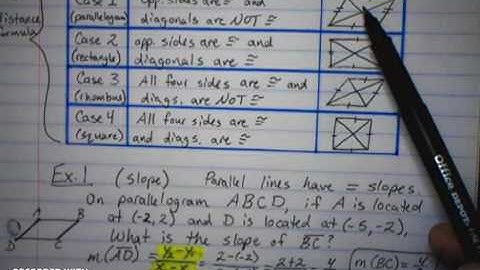 distance
formula
Case 1 opp. sides are ≅ and
(parallelogram) diagonals are NOT ≅
Case 2 opp. sides are ≅ and
(rectangle) diagonals are ≅
Case 3 All four sides are ≅ and
(rhombus) diags. are NOT ≅
Case 4 All four sides are ≅
(square) and diags. are ≅
Ex. 1 (slope) Parallel lines have = slopes.
On parallelogram ABCD, if A is located
at (-2, 2) and D is located at (-5, -2),
What is the slope of BC?
A B
D C
m(AD) = 2-(-2) 2+2 4
m(BC) = 4
Office DEPOT